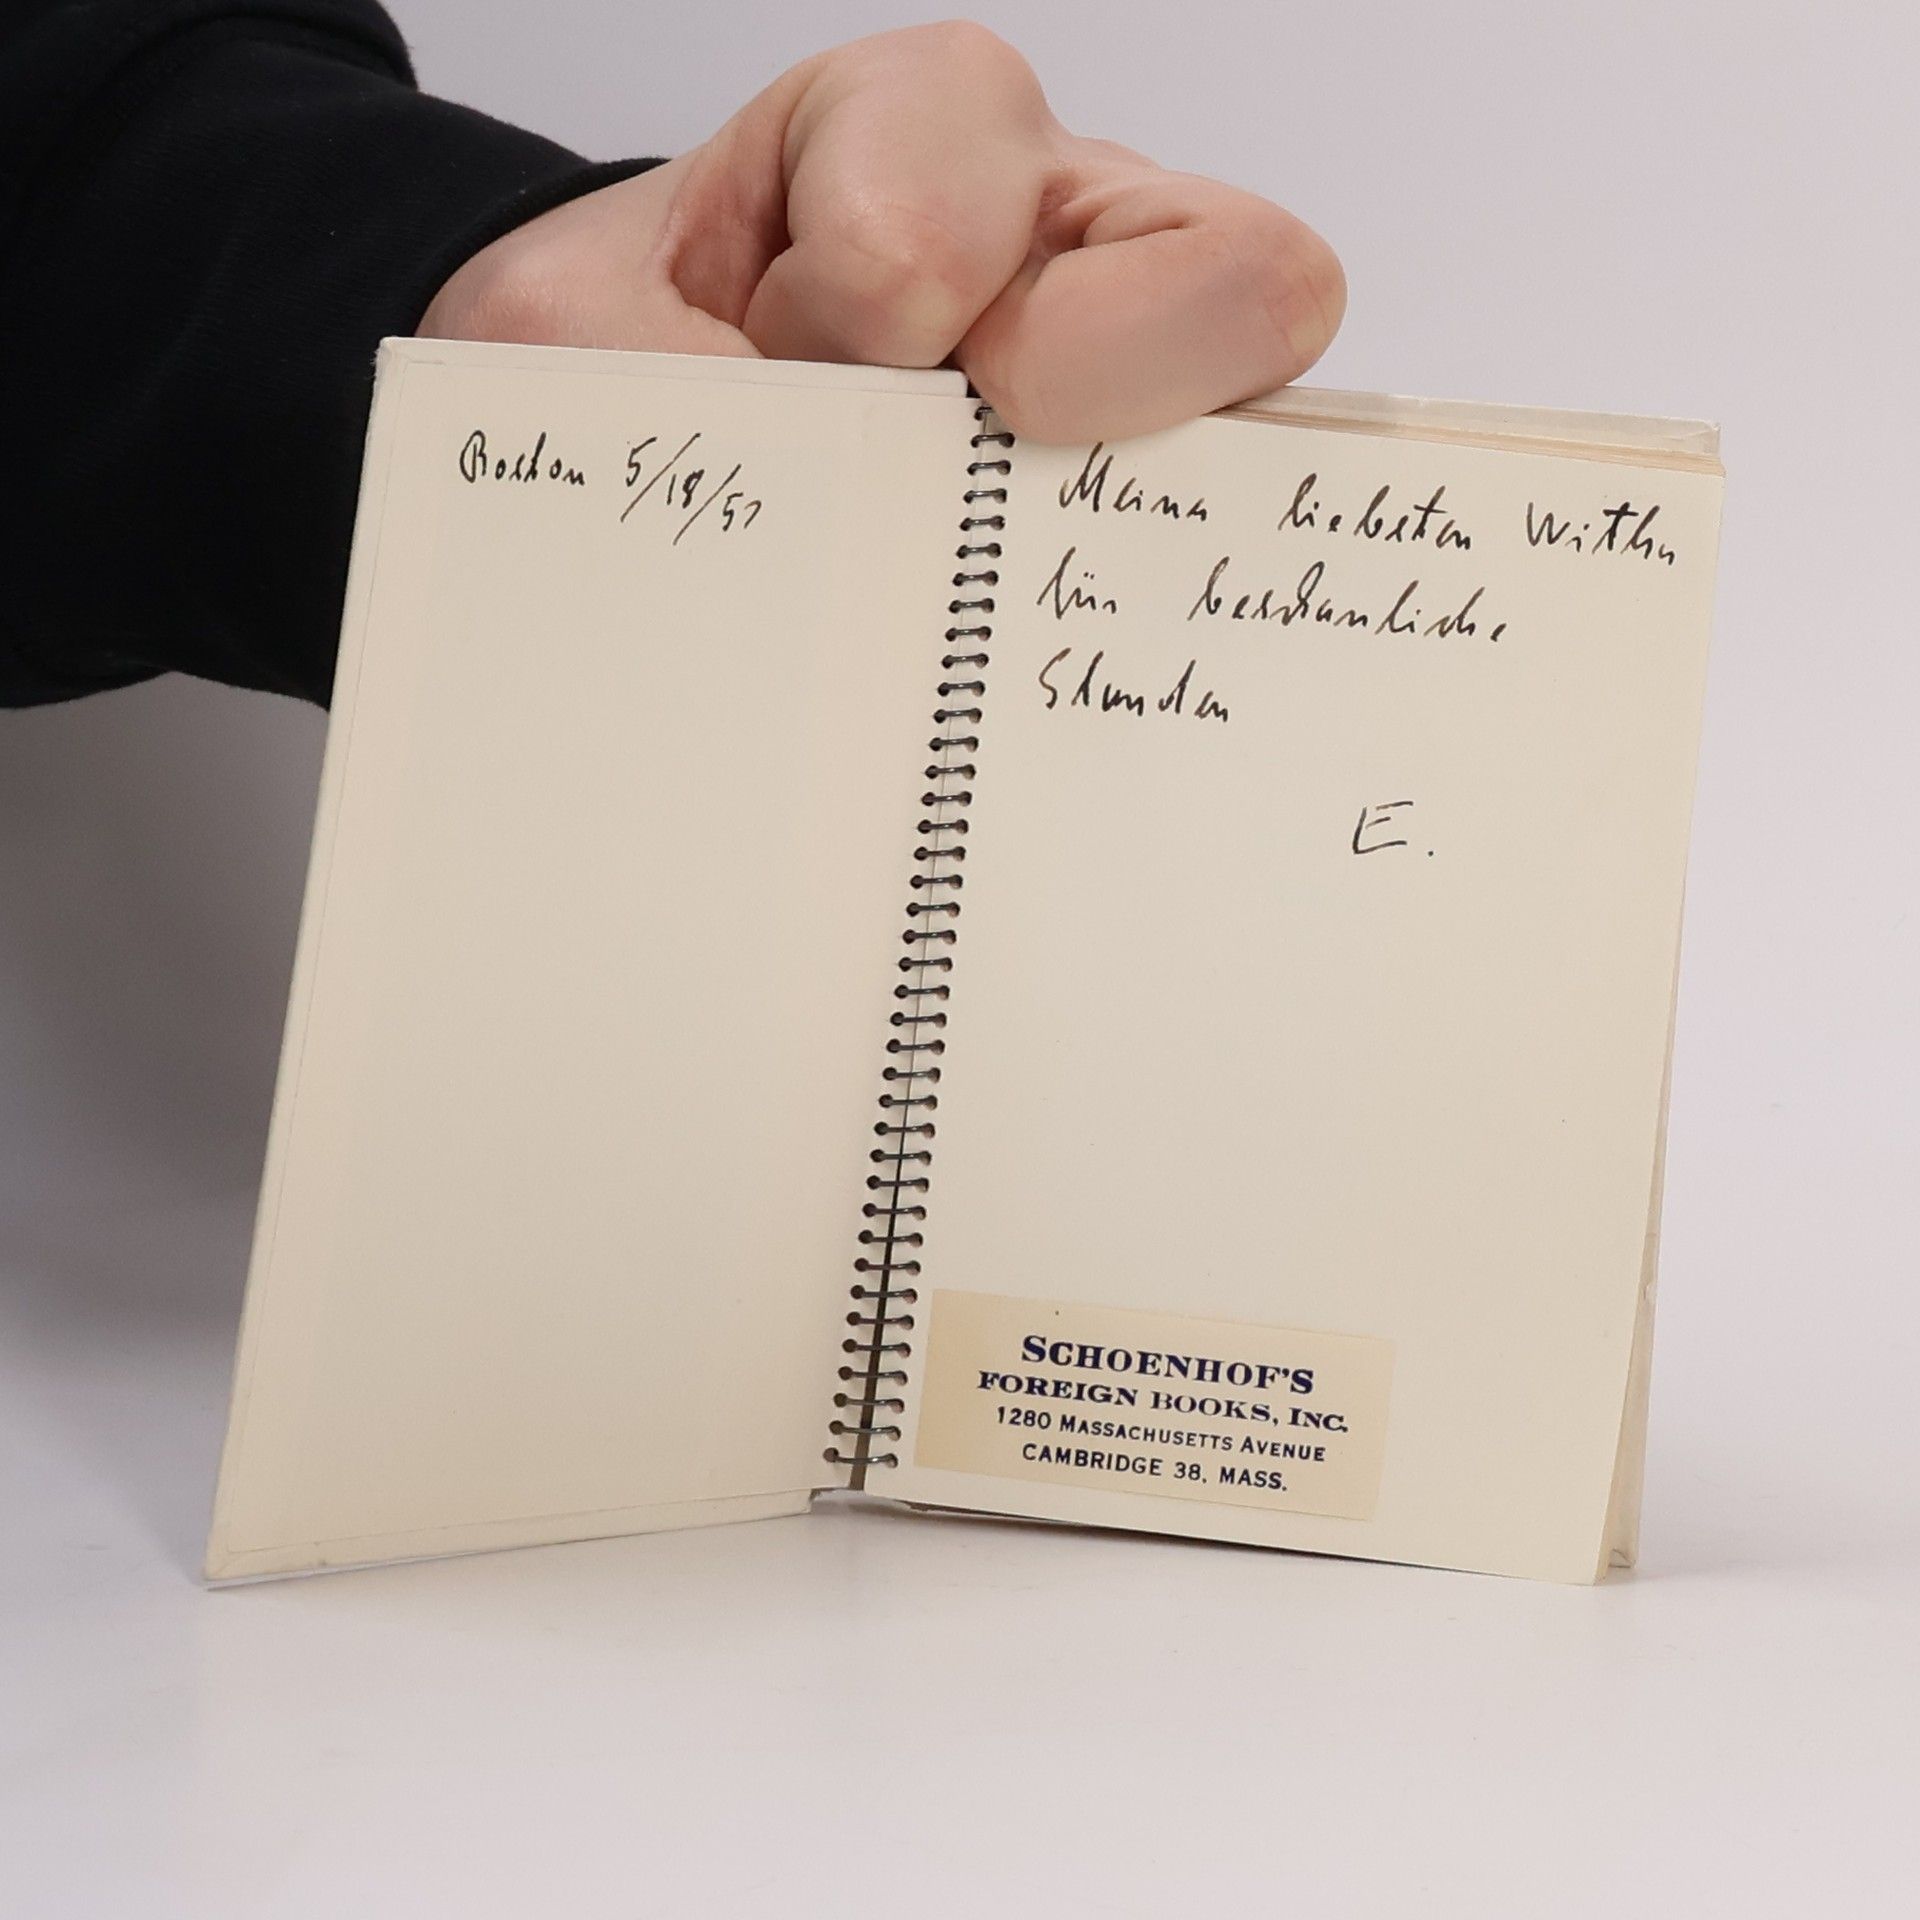 Boston 5/18/57
Meiner liebsten
für beschauliche
Stunden
E.
SCHOENHOF'S
FOREIGN BOOKS, INC.
1280 MASSACHUSETTS AVENUE
CAMBRIDGE 38, MASS.